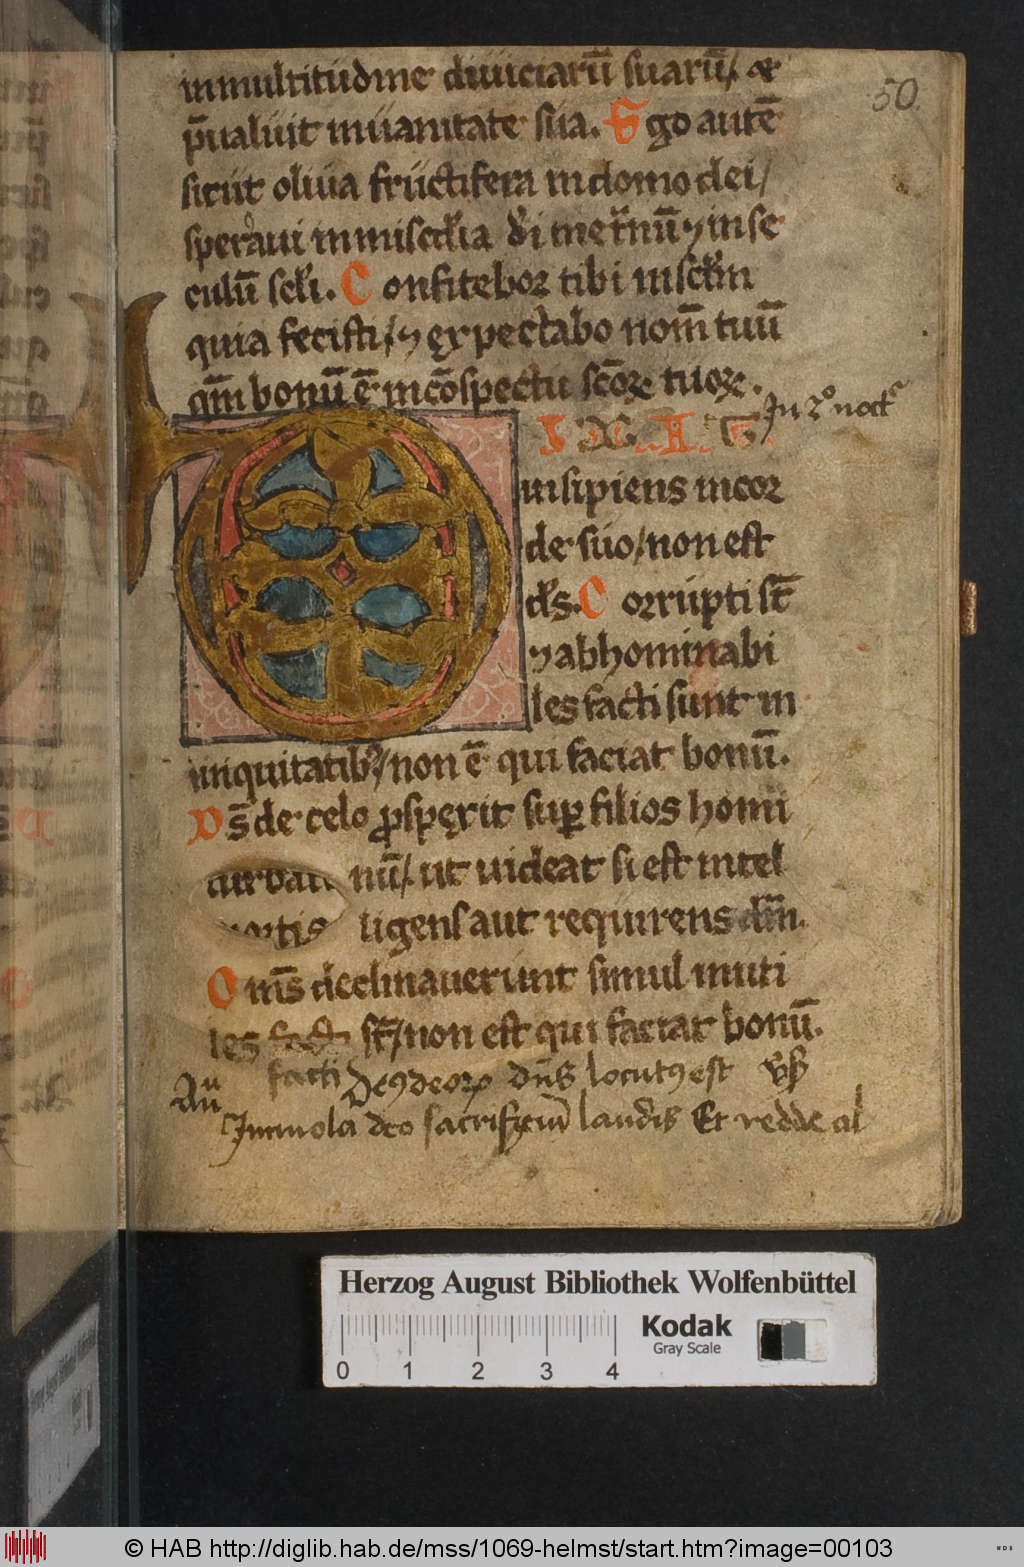 inmultitudine diuiciarū suaꝝ/ et
p̄ualuit inuanitate sua. Ego autē
sicut oliua fructifera in domo dei/
speraui inmisedia di inet̄nū ⁊ inse
culū scli. Confitebor tibi inseclm
quia fecisti/ ⁊ expectabo nom̄ tuū
qm̄ bonū ē incōspectu scōꝝ tuoꝝ.
In 2° noct
D IXIT
insipiens incor
de suo/ non est
ds. Corrupti st̄
⁊ abhominabi
les facti sunt in
iniquitatibꝰ/ non ē qui faciat bonū.
Ds̄ de celo ꝓspexit suꝑ filios homi
nū/ ut uideat si est intel
ligens aut requirens dm̄.
Oms̄ declinauerunt simul inuti
les facti st̄/ non est qui faciat bonū.
facti Deꝰ deoꝝ dn̄s locutꝰ est
Añ Immola deo sacrificiū laudis Et redde al
50.
Herzog August Bibliothek Wolfenbüttel
Kodak
Gray Scale
0 1 2 3 4
© HAB http://diglib.hab.de/mss/1069-helmst/start.htm?image=00103